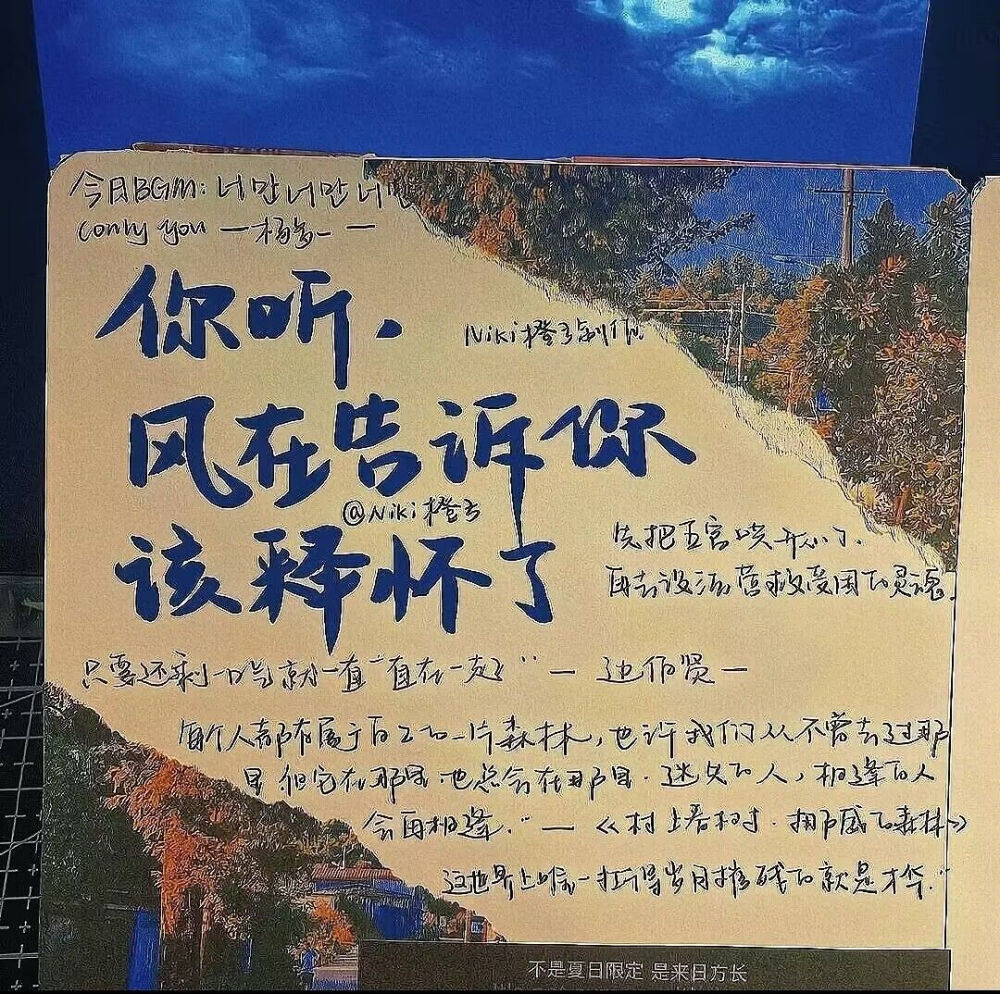 今日BGM: 너만 너만 너만
(only you —杨多一—
你听,
Niki橙子制作
风在告诉你
@Niki橙子
该释怀了
先把五官哄开心了,
再去设法营救受困的灵魂.
只要还剩一口气就一直一直在一起" — 边伯贤 —
每个人都有属于自己的一片森林,也许我们从不曾去过那
里但它在那里 也总会在那里. 迷失的人, 相逢的人
会再相逢." — 《村上春树. 挪威的森林》
这世界上唯一扛得岁月摧残的就是才华."
不是夏日限定 是来日方长